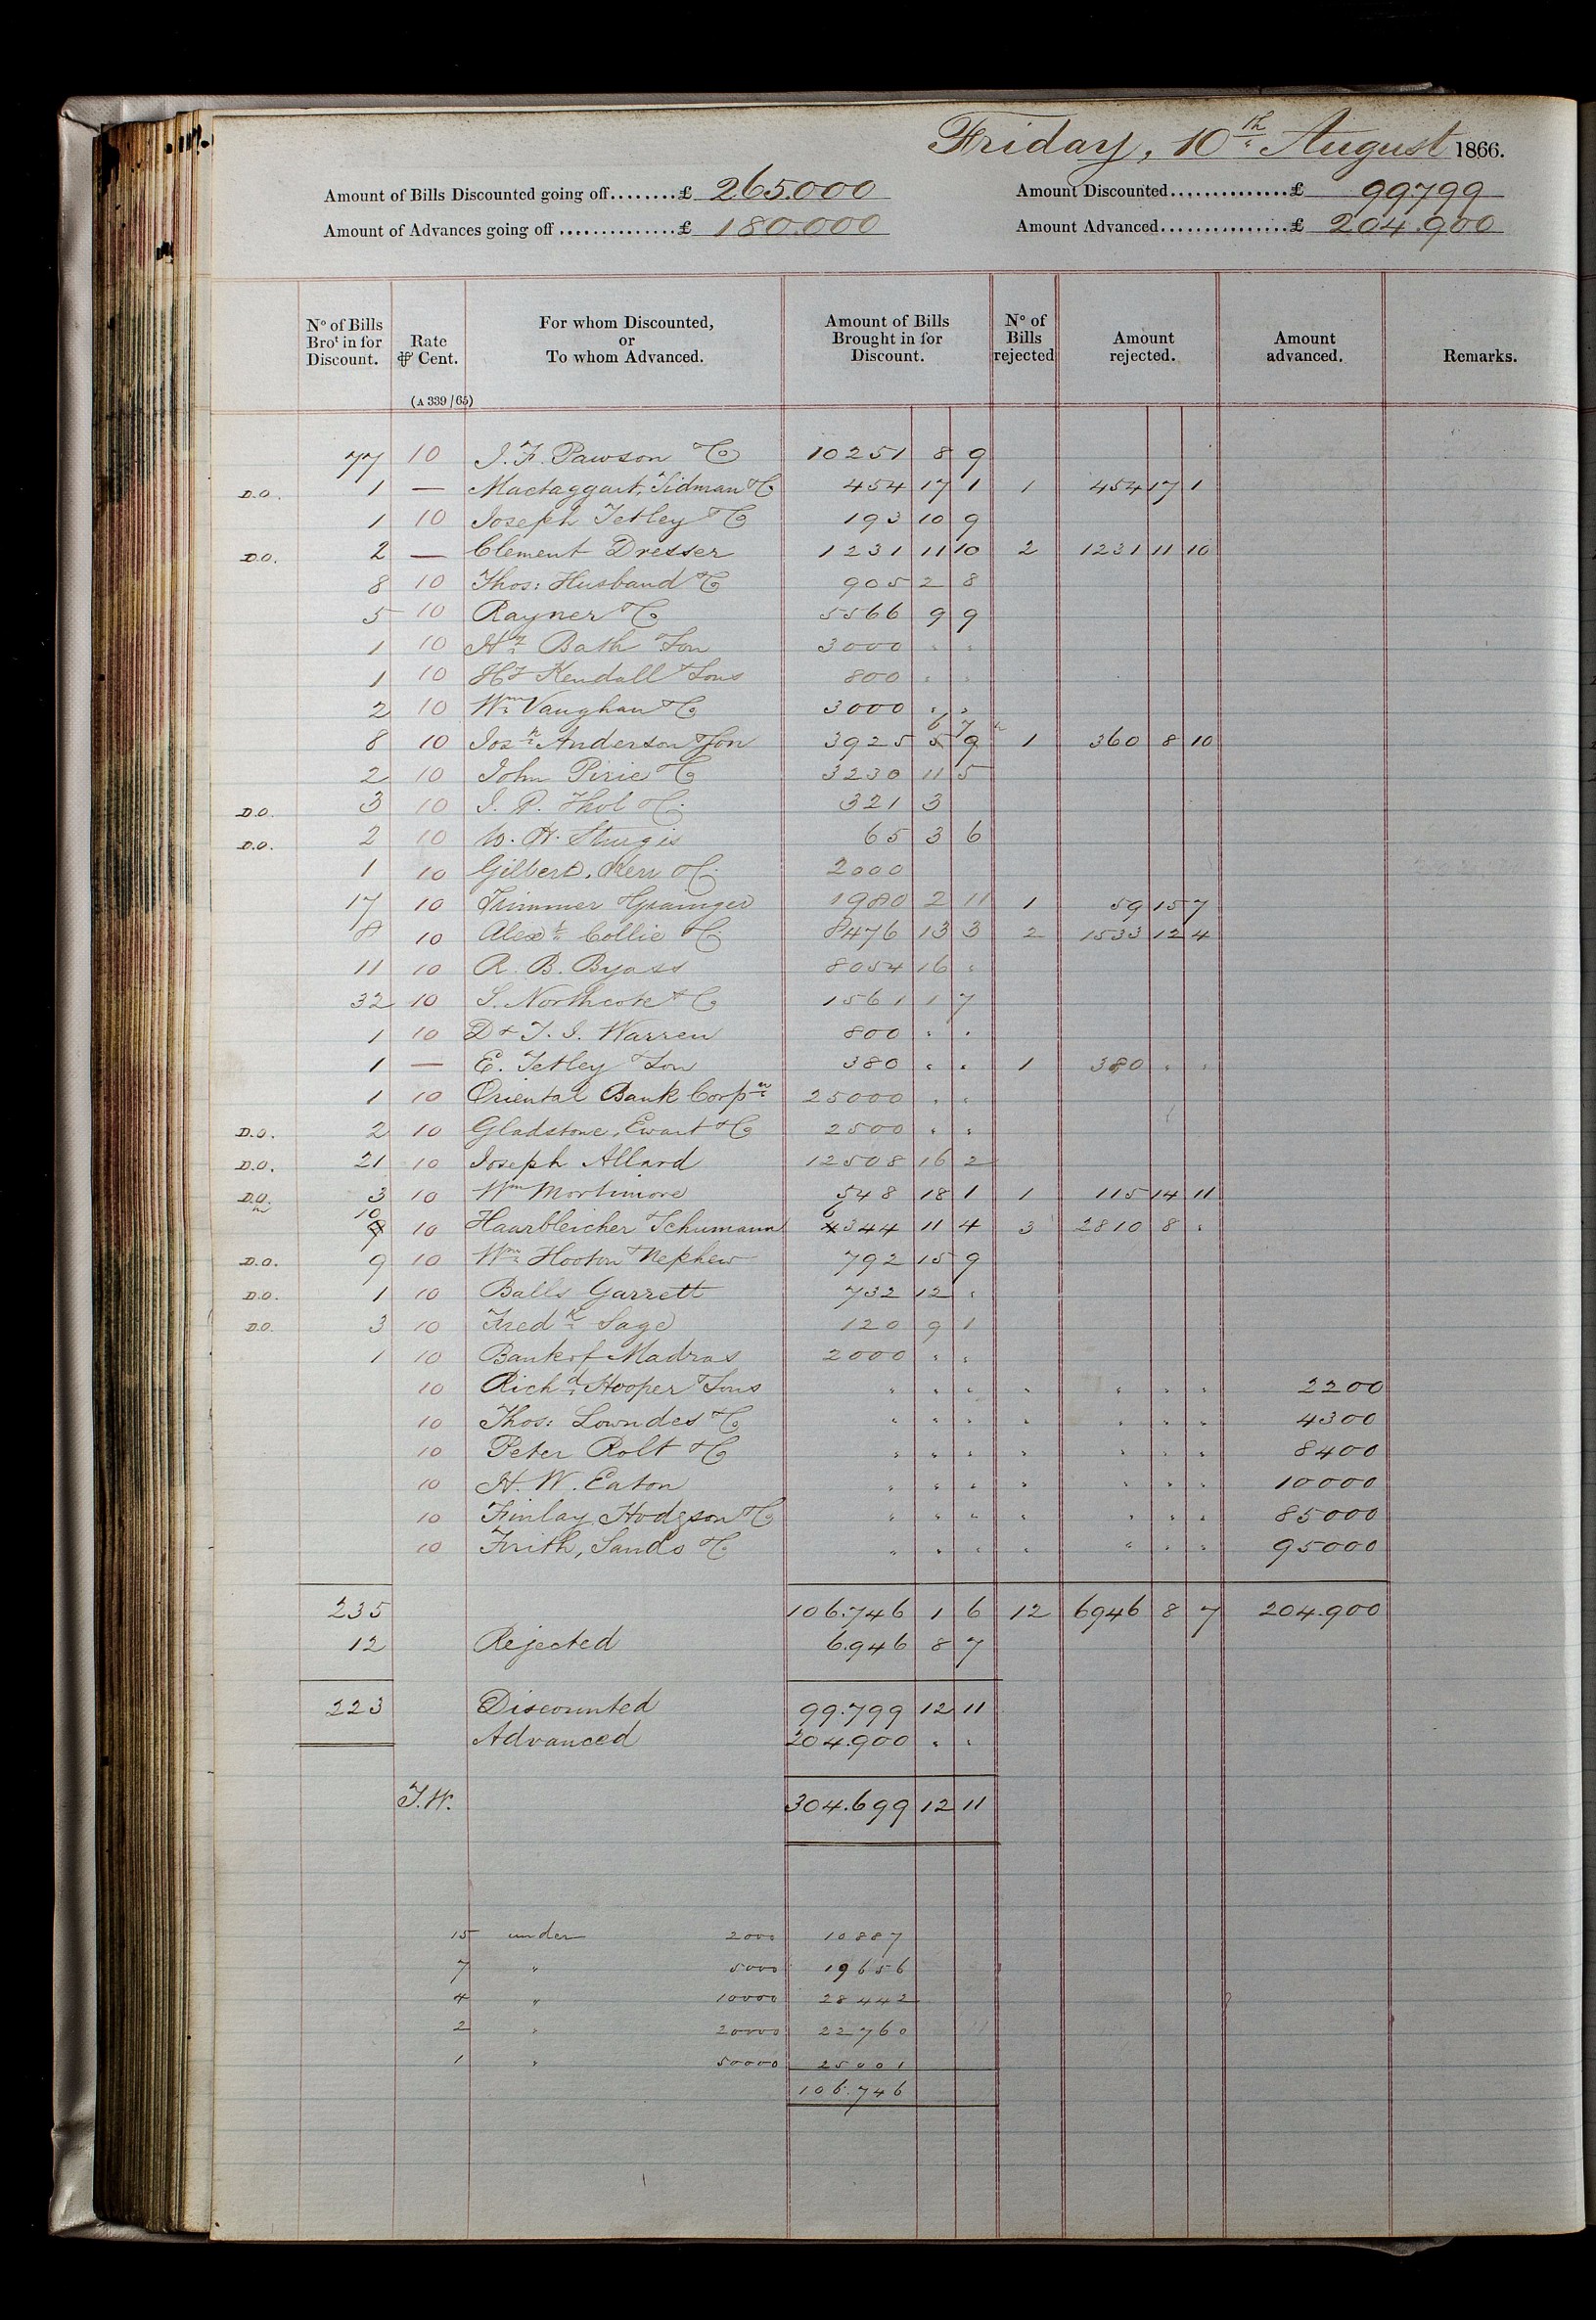 Friday, 10th August 1866.
Amount of Bills Discounted going off........£ 265.000 Amount Discounted..............£ 99.799
Amount of Advances going off ..............£ 180.000 Amount Advanced...............£ 204.900
No of Bills Brot in for Discount. Rate ⅌ Cent. (A 339/65) For whom Discounted, or To whom Advanced. Amount of Bills Brought in for Discount. No of Bills rejected Amount rejected. Amount advanced. Remarks.
77 10 J. F. Pawson & Co 10251 8 9
D.O. 1 — Mactaggart, Tidman & Co 454 17 1 1 454 17 1
1 10 Joseph Tetley & Co 193 10 9
D.O. 2 — Clement Dresser 1231 11 10 2 1231 11 10
8 10 Thos: Husband & Co 905 2 8
5 10 Rayner & Co 5566 9 9
1 10 Hy Bath & Son 3000 " "
1 10 Hy Kendall & Sons 800 " "
2 10 Wm Vaughan & Co 3000 " "
8 10 Josh Anderson & Son 3925 6 7 1 360 8 10
2 10 John Pirie & Co 3230 11 5
D.O. 3 10 J. P. Thol & Co 321 3
D.O. 2 10 W. H. Sturgis 65 3 6
1 10 Gilbert, Kerr & Co 2000
17 10 Trimmer & Grainger 1980 2 11 1 59 15 7
8 10 Alexr Collie & Co 8476 13 3 2 1533 12 4
11 10 R. B. Byass 8054 16 "
32 10 S. Northcote & Co 1561 1 7
1 10 D & T. J. Warren 800 " "
1 — E. Tetley & Son 380 " " 1 380 " "
1 10 Oriental Bank Corpn 25000 " "
D.O. 2 10 Gladstone, Ewart & Co 2500 " "
D.O. 21 10 Joseph Allard 12508 16 2
D.O. 3 10 Wm Mortimore 548 18 1 1 115 14 11
10 10 Haarbleicher & Schumann 6344 11 4 3 2810 8 "
D.O. 9 10 Wm Hooton & Nephew 792 15 9
D.O. 1 10 Balls Garrett 732 12 "
D.O. 3 10 Fredk Sage 120 9 1
1 10 Bank of Madras 2000 " "
10 Richd Hooper & Sons " " " " " " " 2200
10 Thos: Lowndes & Co " " " " " " " 4300
10 Peter Rolt & Co " " " " " " " 8400
10 H. W. Eaton " " " " " " " 10000
10 Finlay, Hodgson & Co " " " " " " " 85000
10 Frith, Sands & Co " " " " " " " 95000
235 106.746 1 6 12 6946 8 7 204.900
12 Rejected 6.946 8 7
223 Discounted 99.799 12 11
Advanced 204.900 " "
T.W. 304.699 12 11
15 under 2000 10887
7 " 5000 19656
4 " 10000 28442
2 " 20000 22760
1 " 50000 25001
106.746